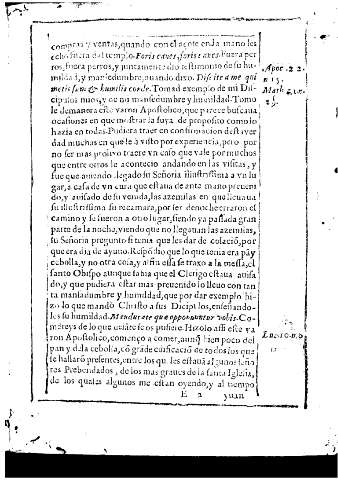 compras y ventas, quando con el açote en la mano les
echo fuera del templo. Foris canes, foris canes: fuera per
ros, fuera perros, y juntamente dio testimonio de su hu-
mildad, y mansedumbre, quando dixo. Discite a me qui
mitis sum & humilis corde. Tomad exemplo de mi Dis-
cipulos mios, y de mi mansedumbre y humildad. Tomo
le de manera este varon Apostolico, que parece buscaua
ocasiones en que mostrar la suya de proposito como lo
hazia en todas. Pudiera traer en confirmacion desta ver
dad muchas en que le à visto por experiencia, pero por
no ser mas prolixo traere vn caso que vale por muchos
que entre otros le acontecio andando en las visitas, y
fue que auiendo llegado su Señoria illustrissima a vn lu
gar, a casa de vn cura que estaua de ante mano preueni
do, y auisado de su venida, las azemilas en que lleuaua
su illustrissima su recamara, por ser de noche erraron el
camino y se fueron a otro lugar, siendo ya passada gran
parte de la noche, viendo que no llegauan las azemilas,
su Señoria pregunto si tenia que les dar de colació, por
que era dia de ayuno. Respódio que lo que tenia era pá y
cebolla, y no otra cosa, y assi essa se traxo a la messa, el
santo Obispo aunque sabia que el Clerigo estaua auisa
do, y que pudiera estar mas preuenido lo lleuo con tan
ta mansadumbre y humildad, que por dar exemplo hi-
zo lo que mandò Christo a sus Dicipulos, enseñando-
les su humildad. Manducate que apponuntur vobis. Co-
mereys de lo que os pusiere. Hizolo assi este va
ron Apostolico, començo a comer, aunq̃ bien poco del
pan y dela cebolla, có gráde edificació de todos los que
se hallarō presentes, entre los qu les estauã algunos seño
res Prebendados, de los mas graues de la santa Iglesia,
de los quales algunos me estan oyendo, y al tiempo
E 2 yuan
Apoc. 22.
n 15.
Math. 11. n.
29.
Luc. 10. n.